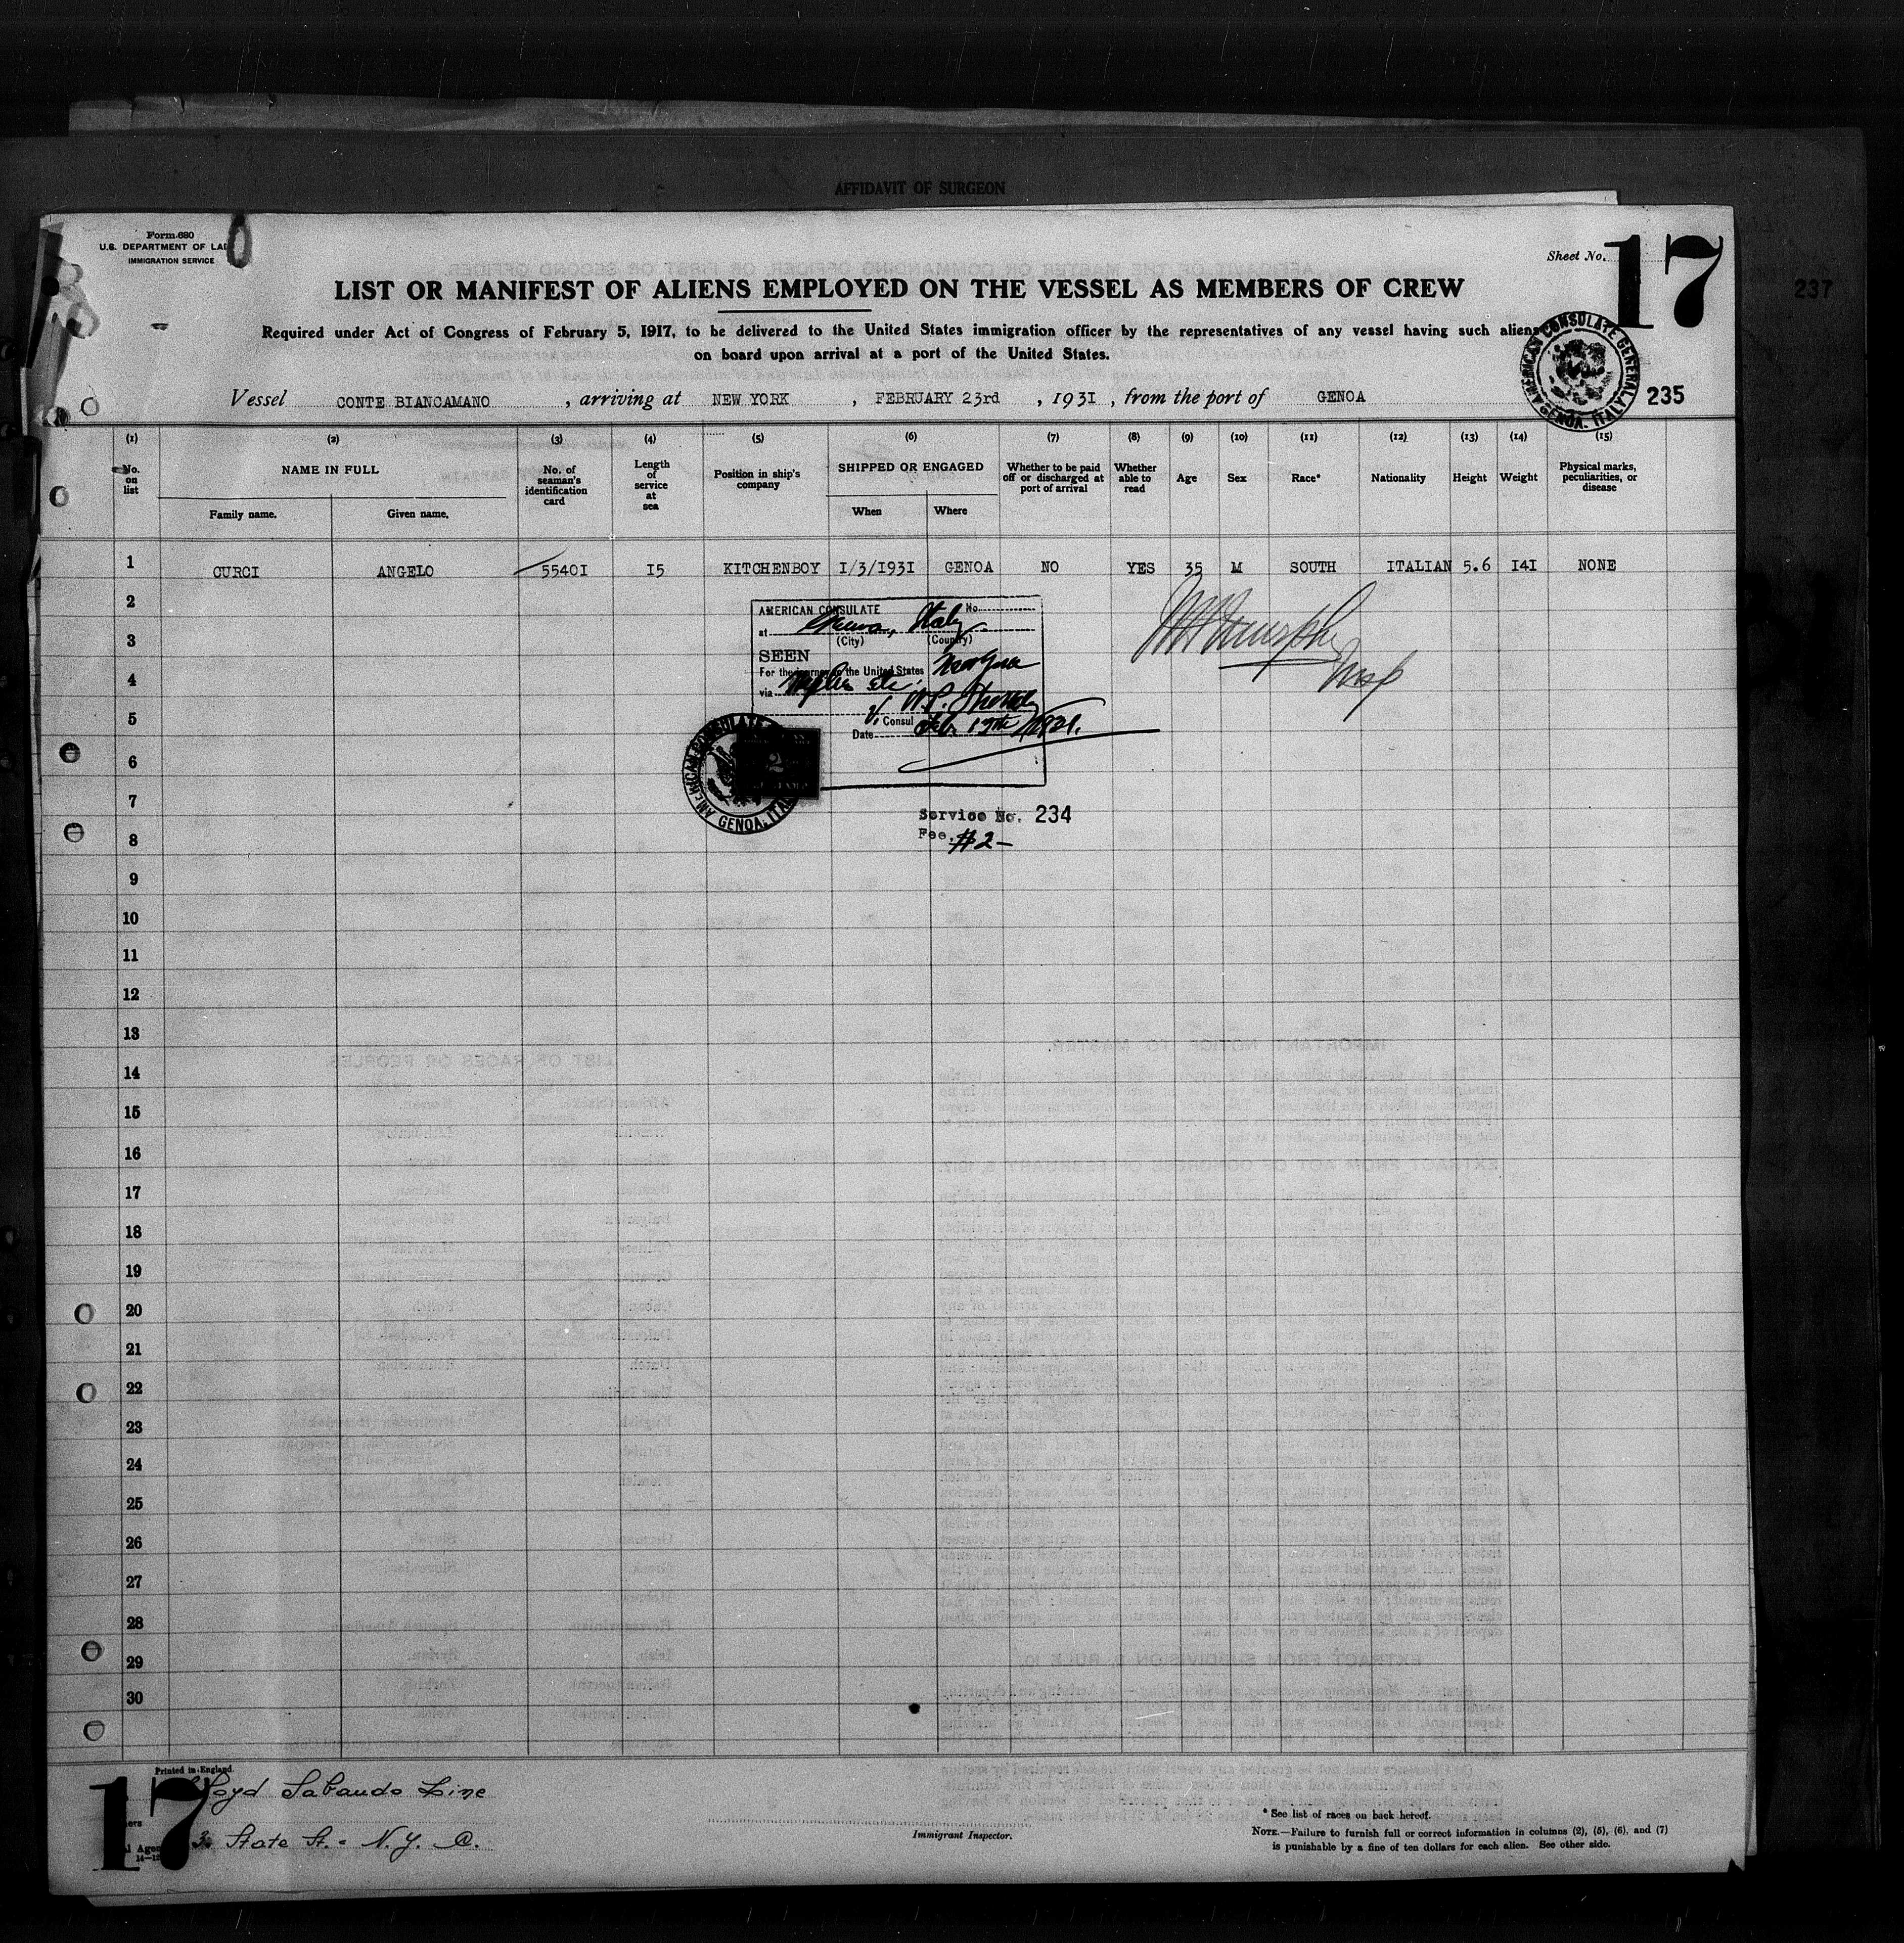 AFFIDAVIT OF SURGEON
Form 680
U.S. DEPARTMENT OF LA
IMMIGRATION SERVICE
Sheet No. 17
237
LIST OR MANIFEST OF ALIENS EMPLOYED ON THE VESSEL AS MEMBERS OF CREW
Required under Act of Congress of February 5, 1917, to be delivered to the United States immigration officer by the representatives of any vessel having such aliens
on board upon arrival at a port of the United States.
AMERICAN CONSULATE GENERAL, GENOA, ITALY
235
Vessel CONTE BIANCAMANO, arriving at NEW YORK, FEBRUARY 23rd, 1931, from the port of GENOA
(1) (2) (3) (4) (5) (6) (7) (8) (9) (10) (11) (12) (13) (14) (15)
No. on list
NAME IN FULL
Family name. Given name.
No. of seaman's identification card
Length of service at sea
Position in ship's company
SHIPPED OR ENGAGED
When Where
Whether to be paid off or discharged at port of arrival
Whether able to read
Age
Sex
Race*
Nationality
Height
Weight
Physical marks, peculiarities, or disease
1 CURCI ANGELO 55401 15 KITCHENBOY 1/3/1931 GENOA NO YES 35 M SOUTH ITALIAN 5.6 141 NONE
2
3
4
5
6
7
8
9
10
11
12
13
14
15
16
17
18
19
20
21
22
23
24
25
26
27
28
29
30
AMERICAN CONSULATE No.
at Genoa, Italy
(City) (Country)
SEEN
For the journey to the United States New York
via Naples etc.
V. Consul
Date Feb. 13th 1931.
AMERICAN CONSULATE GENOA, ITALY
2
Service No. 234
Fee. $2-
Printed in England.
Lloyd Sabaudo Line
3 State St. - N.Y. C.
17
14—12
Immigrant Inspector.
* See list of races on back hereof.
NOTE.—Failure to furnish full or correct information in columns (2), (5), (6), and (7)
is punishable by a fine of ten dollars for each alien. See other side.